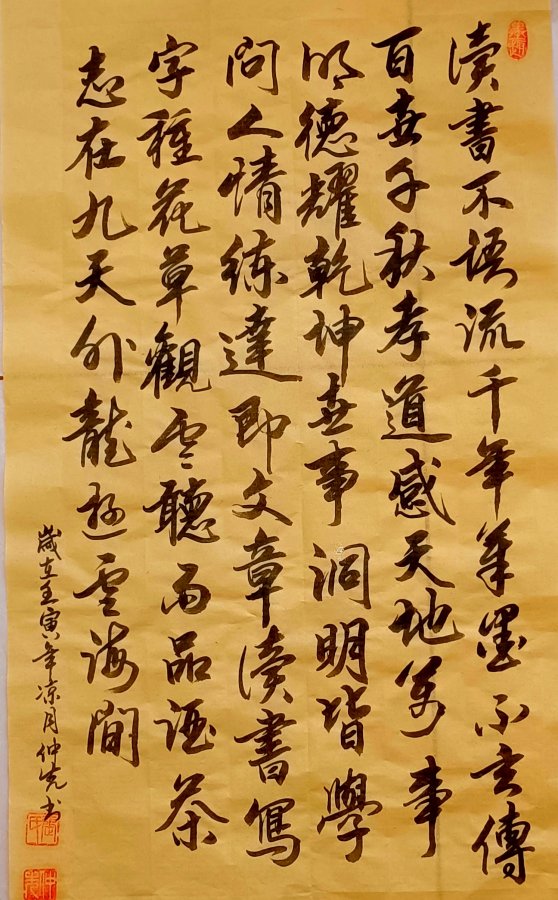 讀書不語流千年筆墨不言傳
百世千秋孝道感天地萬事
明德耀乾坤世事洞明皆學
問人情練達即文章讀書寫
字種花草觀雲聽雨品酒茶
志在九天外龍遊雲海間
歲在壬寅年凉月仲先书